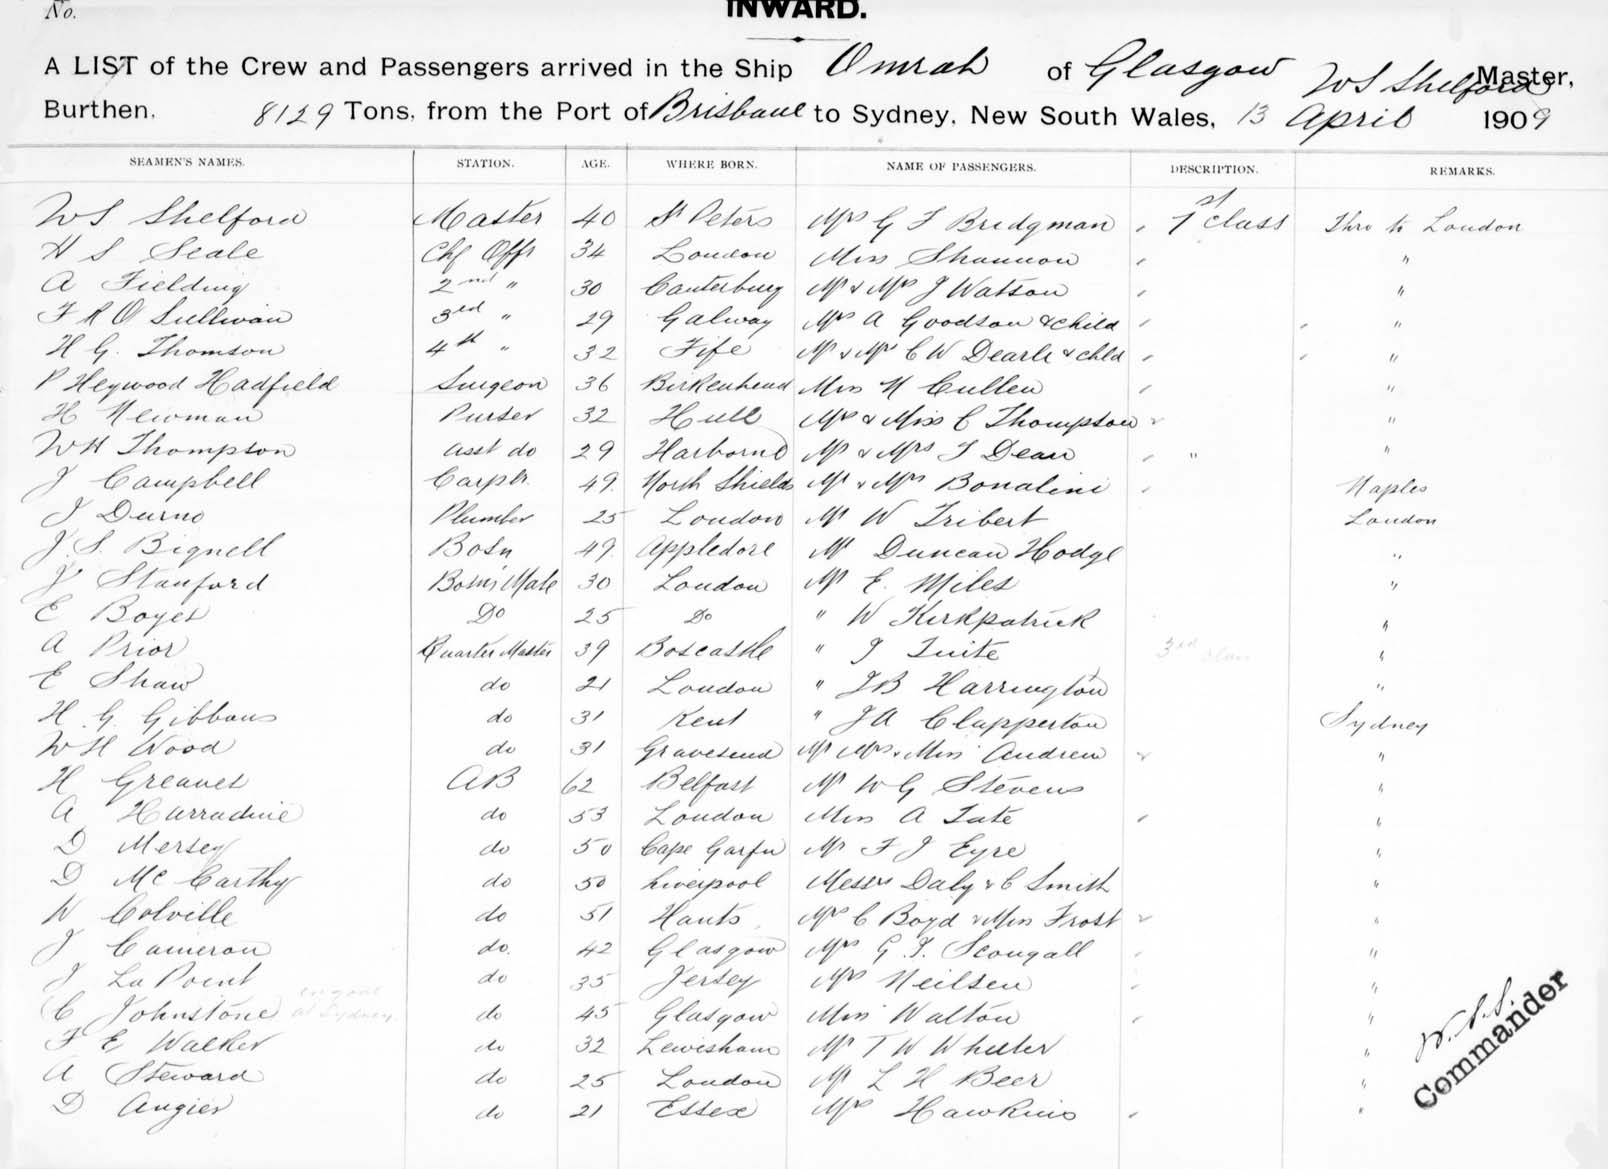 No.
INWARD.
A LIST of the Crew and Passengers arrived in the Ship Omrah of Glasgow W S Shelford Master,
Burthen, 8129 Tons, from the Port of Brisbane to Sydney, New South Wales, 13 April 1909
SEAMEN'S NAMES. STATION. AGE. WHERE BORN. NAME OF PASSENGERS. DESCRIPTION. REMARKS.
W S Shelford Master 40 St Peters Mrs G F Bridgman 1st Class Thro to London
H S Seale Chf Offr 34 London Miss Shannon "
A Fielding 2nd " 30 Canterbury Mr & Mrs J Watson "
F R O'Sullivan 3rd " 29 Galway Mrs A Goodson & child "
H G. Thomson 4th " 32 Fife Mr & Mrs C W Dearle & chld "
P Heywood Hadfield Surgeon 36 Birkenhead Miss N Cullen "
H Newman Purser 32 Hull Mrs & Miss C Thompson "
W H Thompson asst do 29 Harborne Mr & Mrs F Dean " "
J Campbell Carptr. 49. North Shields Mr & Mrs Bonalini Naples
J Durno Plumber 25 London Mr W Tribert London
J. S. Bignell Bosn 49. Appledore Mr Duncan Hodge "
J Stanford Bosn's Mate 30 London Mr E. Miles "
E Boyes Do 25 Do " W Kirkpatrick "
A Prior Quarter Master 39 Boscastle " J Tuite 3rd Class "
E Shaw do 21 London " J B Harrington "
H. G. Gibbons do 31 Kent " J A Clapperton Sydney
W H Wood do 31 Gravesend Mr Mrs & Miss Andrew "
H Greaves AB 62 Belfast Mr W G Stevens "
A Harradine do 53 London Miss A Tate "
D Mersey do 50 Cape Mr F J Eyre "
D McCarthy do 50 Liverpool Messrs Daly & C Smith "
W Colville do 51 Hants Mrs C Boyd & Miss Frost "
J Cameron do. 42 Glasgow Mrs G. F. Scougall "
J La Point do 35 Jersey Mrs Neilsen "
C Johnstone at Sydney do 45 Glasgow Miss Walton "
F E Walker do 32 Lewisham Mr T W Wheeler "
A Steward do 25 London Mr L H Beer "
D Angier do 21 Essex Mrs Hawkins "
W. S. S.
Commander